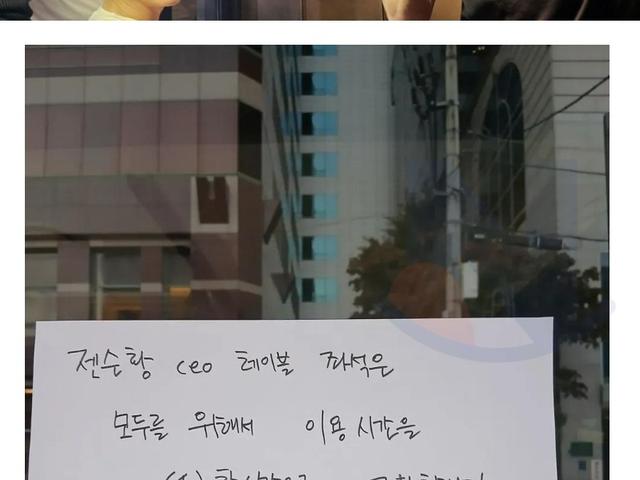 젠슨황 ceo 테이블 좌석은
모두를 위해서 이용시간을